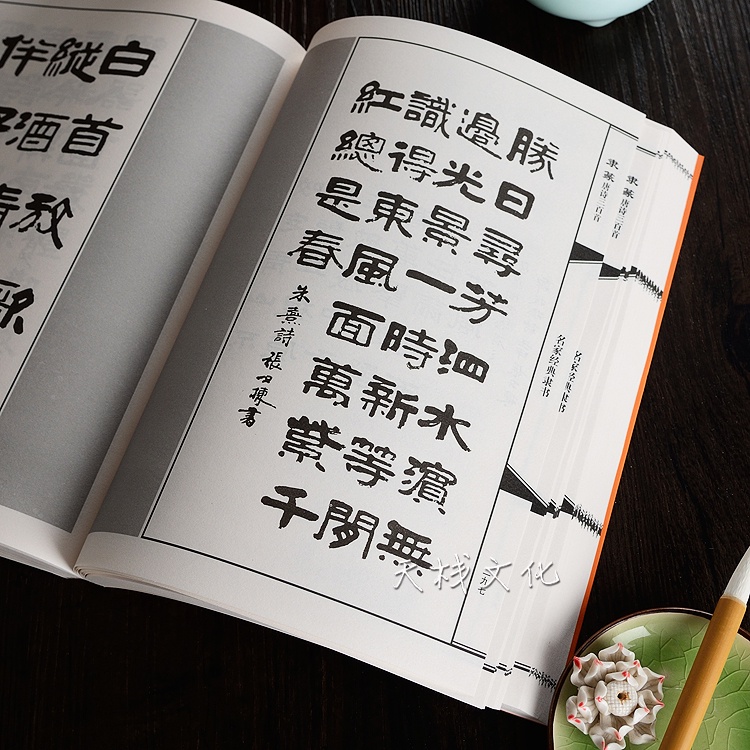 勝日尋芳泗水濱無
邊光景一時新等閒
識得東風面萬紫千
紅總是春
朱熹詩 張
書
隶篆唐诗三百首
名家经典隶书
隶篆唐诗三百首
名家经典隶书
九七
白首放歌
縱酒青
伴
天栈文化